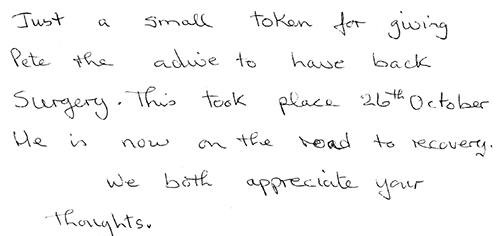 Just a small token for giving
Pete the advie to have back
Surgery. This took place 26th October
He is now on the road to recovery.
We both appreciate your
thoughts.